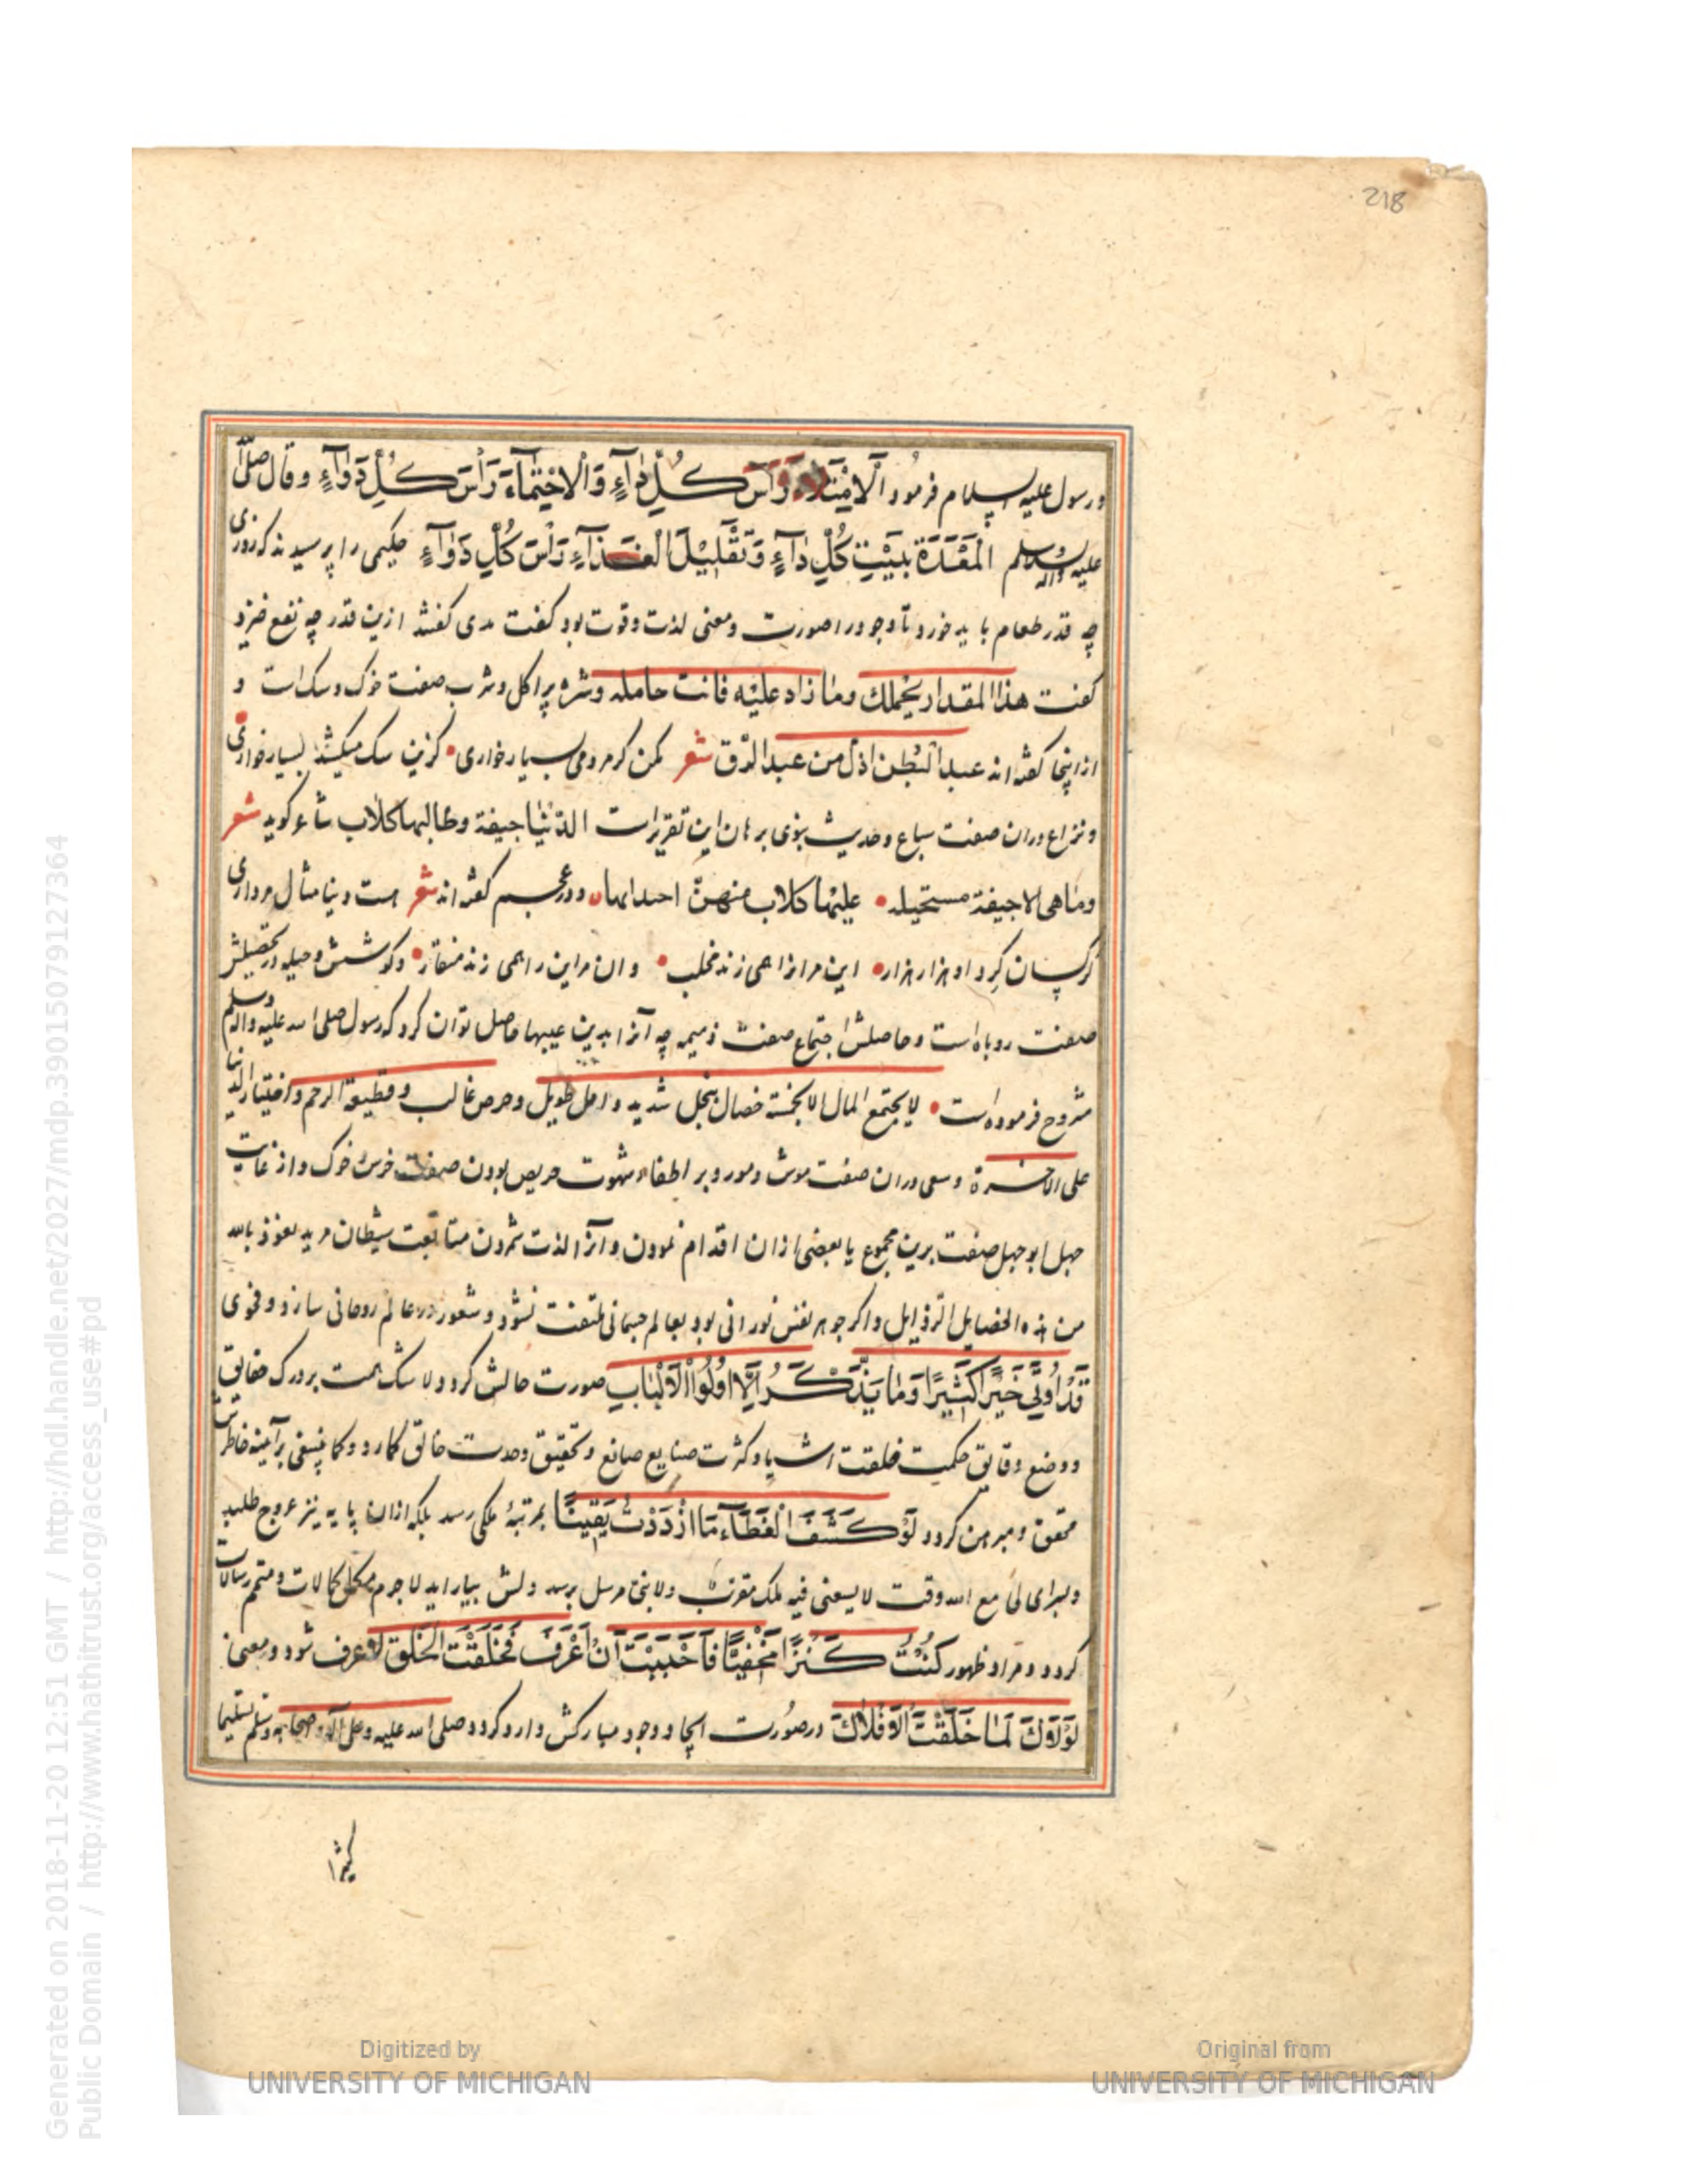 218
ورسول علیه السلام فرمود اَلْاِمْتِلَاءُ رَأْسُ كُلِّ دَآءٍ وَالْاِحْتِمَآءُ رَأْسُ كُلِّ دَوَآءٍ وقال صلى الله
علیه واله وسلم اَلْمَعِدَةُ بَيْتُ كُلِّ دَآءٍ وَتَقْلِيْلُ الْغِذَآءِ رَأْسُ كُلِّ دَوَآءٍ حکیمی را پرسیدند که روزی
چه قدر طعام باید خورد تا وجود را صورت ومعنی لذت وقوت بود کفت مدی کفتند ازین قدر چه نفع خیزد
کفت هذا المقدار یحملك وما زاد علیه فانت حامله وشره بر اکل وشرب صفت خوک وسک است و
از اینجا کفته اند عبد البطن اذل من عبد الرق شعر مکن کر مردمی بسیار خواری • کزین سک میکشد بسیار خواری
ونزاع دران صفت سباع وحدیث نبوی برهان این تقریر است الدنیا جیفة وطالبها کلاب شاعر کوید شعر
وما هی الا جیفة مستحیله • علیها کلاب منهن اجتذابها ودر عجم کفته اند شعر هست دنیا مثال مرداری
کرکسان کرد او هزار هزار • این مر انرا همی زند مخلب • وان مر این را همی زند منقار • وکوشش وحیله در تحصیلش
صفت روباه است وحاصلش اجتماع صفت ذمیمه چه آنرا بدین عیبها حاصل توان کرد که رسول صلی الله علیه واله وسلم
مشروح فرموده است • لا یجتمع المال الا بخمسة خصال بخل شدید وامل طویل وحرص غالب وقطیعة الرحم واختیار الدنیا
علی الاخرة وسعی دران صفت موش ومور وبر اطفاء شهوت حریص بودن صفت خرس خوک واز غایت
جهل ابو جهل صفت برین مجموع یا بعضی ازان اقدام نمودن وآنرا لذت شمردن متابعت شیطان مرید نعوذ بالله
من هذه الخصایل الرذایل واکر جوهر نفس نورانی بود بعالم جسمانی ملتفت نشود وشعور در عالم روحانی سازد وفحوی
قَدْ اُوتِيَ خَيْرًا كَثِيْرًا وَمَا يَذَّكَّرُ اِلَّا اُولُوا الْاَلْبَابِ صورت حالش کردد ولا شک همت بر درک حقایق
ووضع دقایق حکمت خلقت اشیا وکثرت صنایع صانع وتحقیق وحدت خالق کمارد وکما ینبغی بر آینه خاطرش
محقق ومبرهن کردد لَوْ كَشَفَ الْغِطَآءَ مَا ازْدَدْتُ يَقِيْنًا بمرتبۀ ملکی رسد بلکه ازان پایه نیز عروج طلبد
وبسرای لی مع الله وقت لا یسعنی فیه ملک مقرب ولا نبی مرسل برسد ودلش بیاراید لاجرم مکمل کمالات ومتمم رسالات
کردد ومراد ظهور كُنْتُ كَنْزًا مَخْفِيًّا فَاَحْبَبْتُ اَنْ اُعْرَفَ فَخَلَقْتُ الْخَلْقَ لاعرف شود ومعنی
لَوْلَاكَ لَمَا خَلَقْتُ الْاَفْلَاكَ در صورت ایجاد وجود مبارکش وارد کردد صلی الله علیه وعلی آله وصحابه وسلم تسلیما
کثیرا
Generated on 2018-11-20 12:51 GMT / http://hdl.handle.net/2027/mdp.39015079127364
Public Domain / http://www.hathitrust.org/access_use#pd
Digitized by
UNIVERSITY OF MICHIGAN
Original from
UNIVERSITY OF MICHIGAN